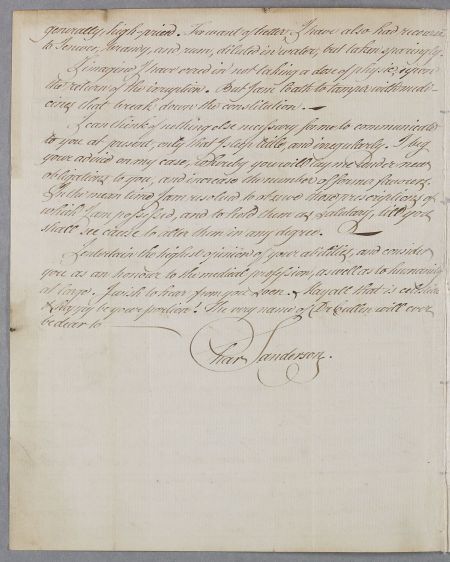 generally, high-priced. For want of better I have also had recourse
to Terwer, brandy, and rum, diluted in water; but taken sparingly.
I imagine I have erred in not taking a dose of physic, upon
the return of the eruption. But I am loath to tamper with medi-
cines that break down the constitution.
I can think of nothing else necessary for me to communicate
to you at present, only that I sleep little, and irregularly. I beg
your advice on my case, whereby you will lay me under new
obligations to you, and increase the number of former favours.
In the mean time I am resolved to observe those prescriptions of
which I am possessed, and to hold them as salutary, till you
shall see cause to alter them in any degree.
I entertain the highest opinion of your abilities, and consider
you as an honour to the medical profession, as well as to humanity
at large. I wish to hear from you soon. & may all that is
& happy be your portion! The very name of Dr Cullen will ever
be dear to
Char Sanderson.